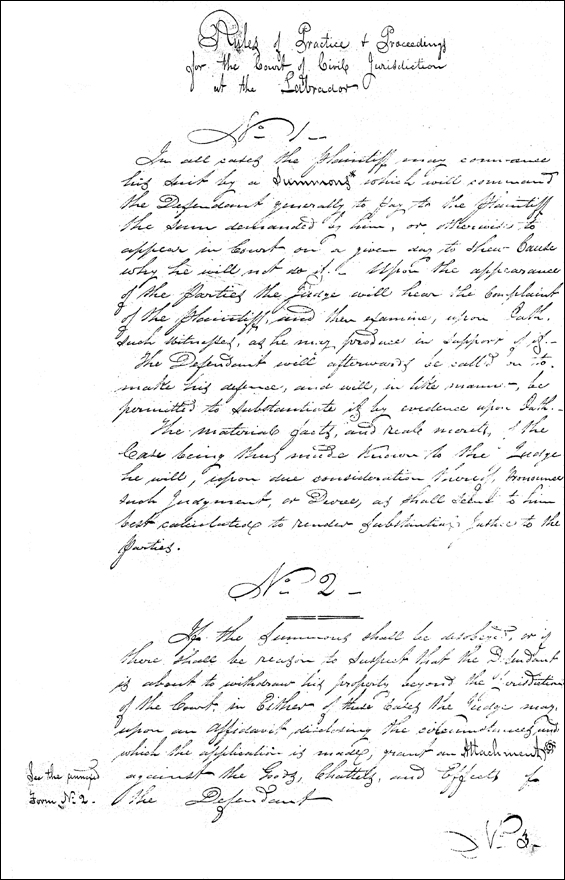 Rules of Practice & Proceedings
for the Court of Civil Jurisdiction
at the Labrador
No. 1
In all cases the Plaintiff may commence
his suit by a Summons* which will command
the Defendant generally to pay to the Plaintiff
the sum demanded by him, or, otherwise to
appear in Court on a given day to shew Cause
why he will not do it. - Upon the appearance
of the Parties the Judge will hear the Complaint
of the Plaintiff, and then examine, upon Oath,
such witnesses, as he may produce in support of it. -
The Defendant will afterwards be call'd on to
make his defence, and will, in like manner, be
permitted to substantiate it by evidence upon Oath. -
The material facts, and real merits, of the
Case being thus made known to the Judge
he will, upon due consideration thereof, pronounce
such Judgement, or Decree, as shall seem to him
best calculated to render substantial Justice to the
Parties.
No. 2 -
If the Summons shall be disobeyed, or if
there shall be reason to suspect that the Defendant
is about to withdraw his property beyond the Jurisdiction
of the Court, in Either of these Cases the Judge may,
upon an Affidavit disclosing the circumstances, under
which the application is made, grant an Attachment
See the annexed
Form No. 2.
against the Goods, Chattels, and Effects of
the Defendant
No. 3